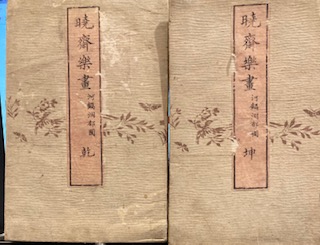 暁齋樂畫 河鍋洞郁圖 乾
暁齋樂畫 河鍋洞郁圖 坤